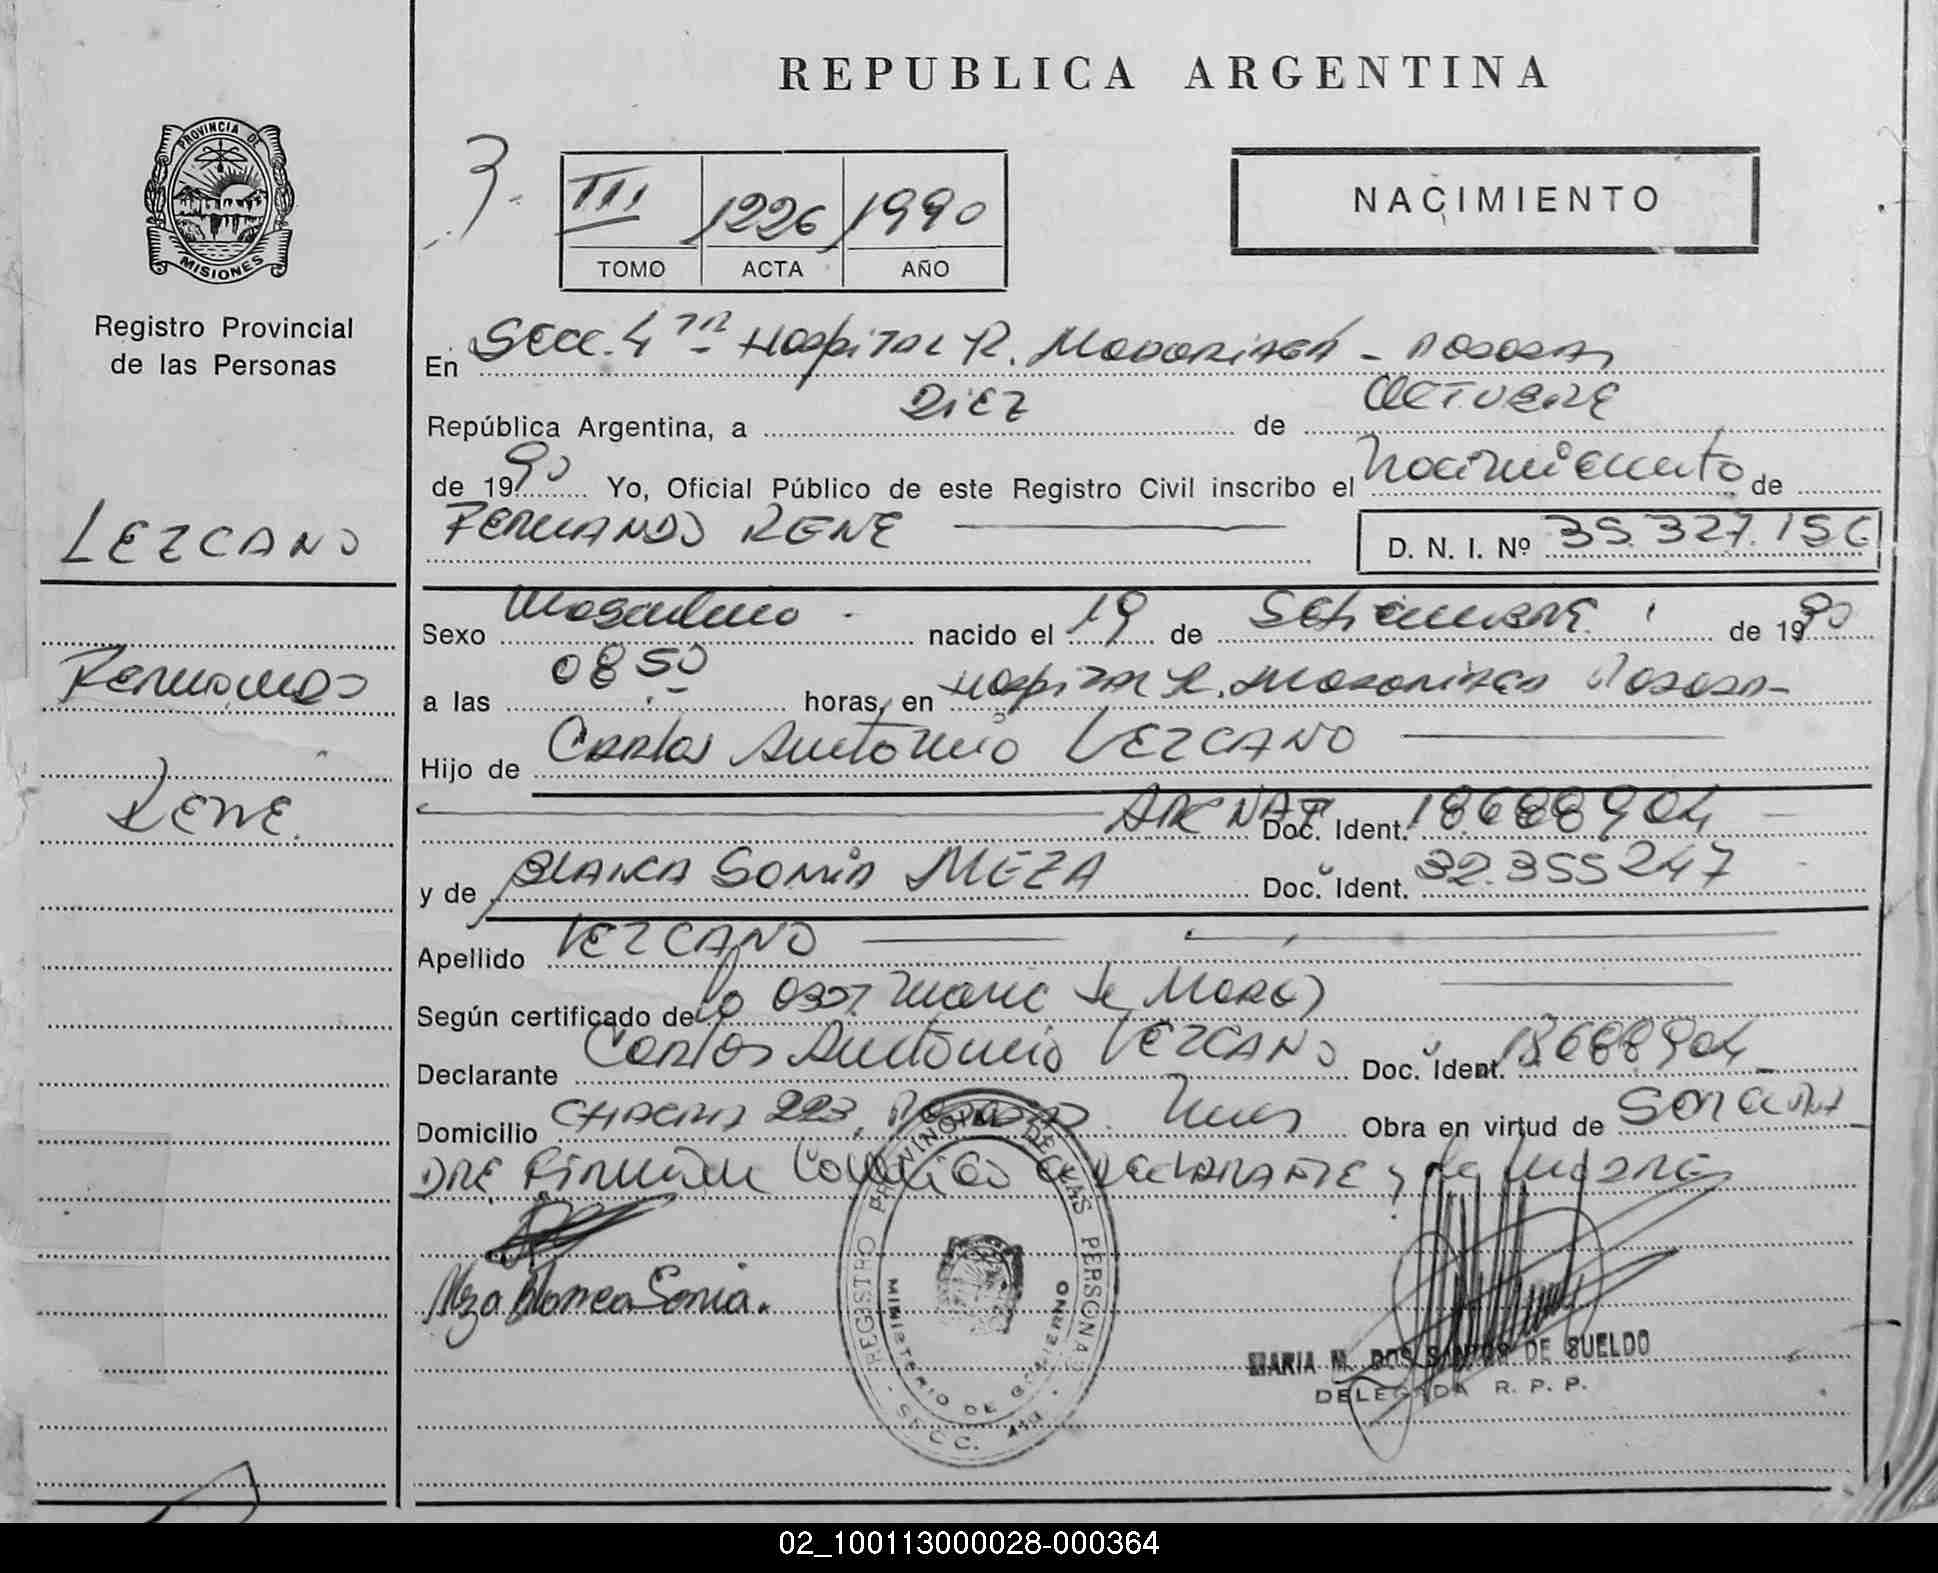 REPUBLICA ARGENTINA
PROVINCIA DE
MISIONES
Registro Provincial
de las Personas
LEZCANO
Fernando
Rene.
3.
III 1226 1990
TOMO ACTA AÑO
NACIMIENTO
En Secc. 4ta Hospital R. Madariaga - Posadas
República Argentina, a DIEZ de OCTUBRE
de 1990 Yo, Oficial Público de este Registro Civil inscribo el Nacimiento de
FERNANDO RENE D. N. I. Nº 35.327.156
Sexo Masculino nacido el 19 de Setiembre de 1990
a las 08.50 horas, en Hospital R. Madariaga Posadas
Hijo de Carlos Antonio LEZCANO
Doc. Ident. 18688904
y de BLANCA SONIA MEZA Doc. Ident. 32.355247
Apellido LEZCANO
Según certificado de la Obst. Marie de
Declarante Carlos Antonio LEZCANO Doc. Ident. 18688904
Domicilio CHACRA 223, Posadas. Mnes Obra en virtud de ser
DRE. Firman conmigo el DECLARANTE y la MADRE
Meza Blanca Sonia.
REGISTRO PROVINCIAL DE LAS PERSONAS
MINISTERIO DE GOBIERNO
SECC. 4ta
MARIA M. DOS SANTOS DE SUELDO
DELEGADA R. P. P.
02_100113000028-000364